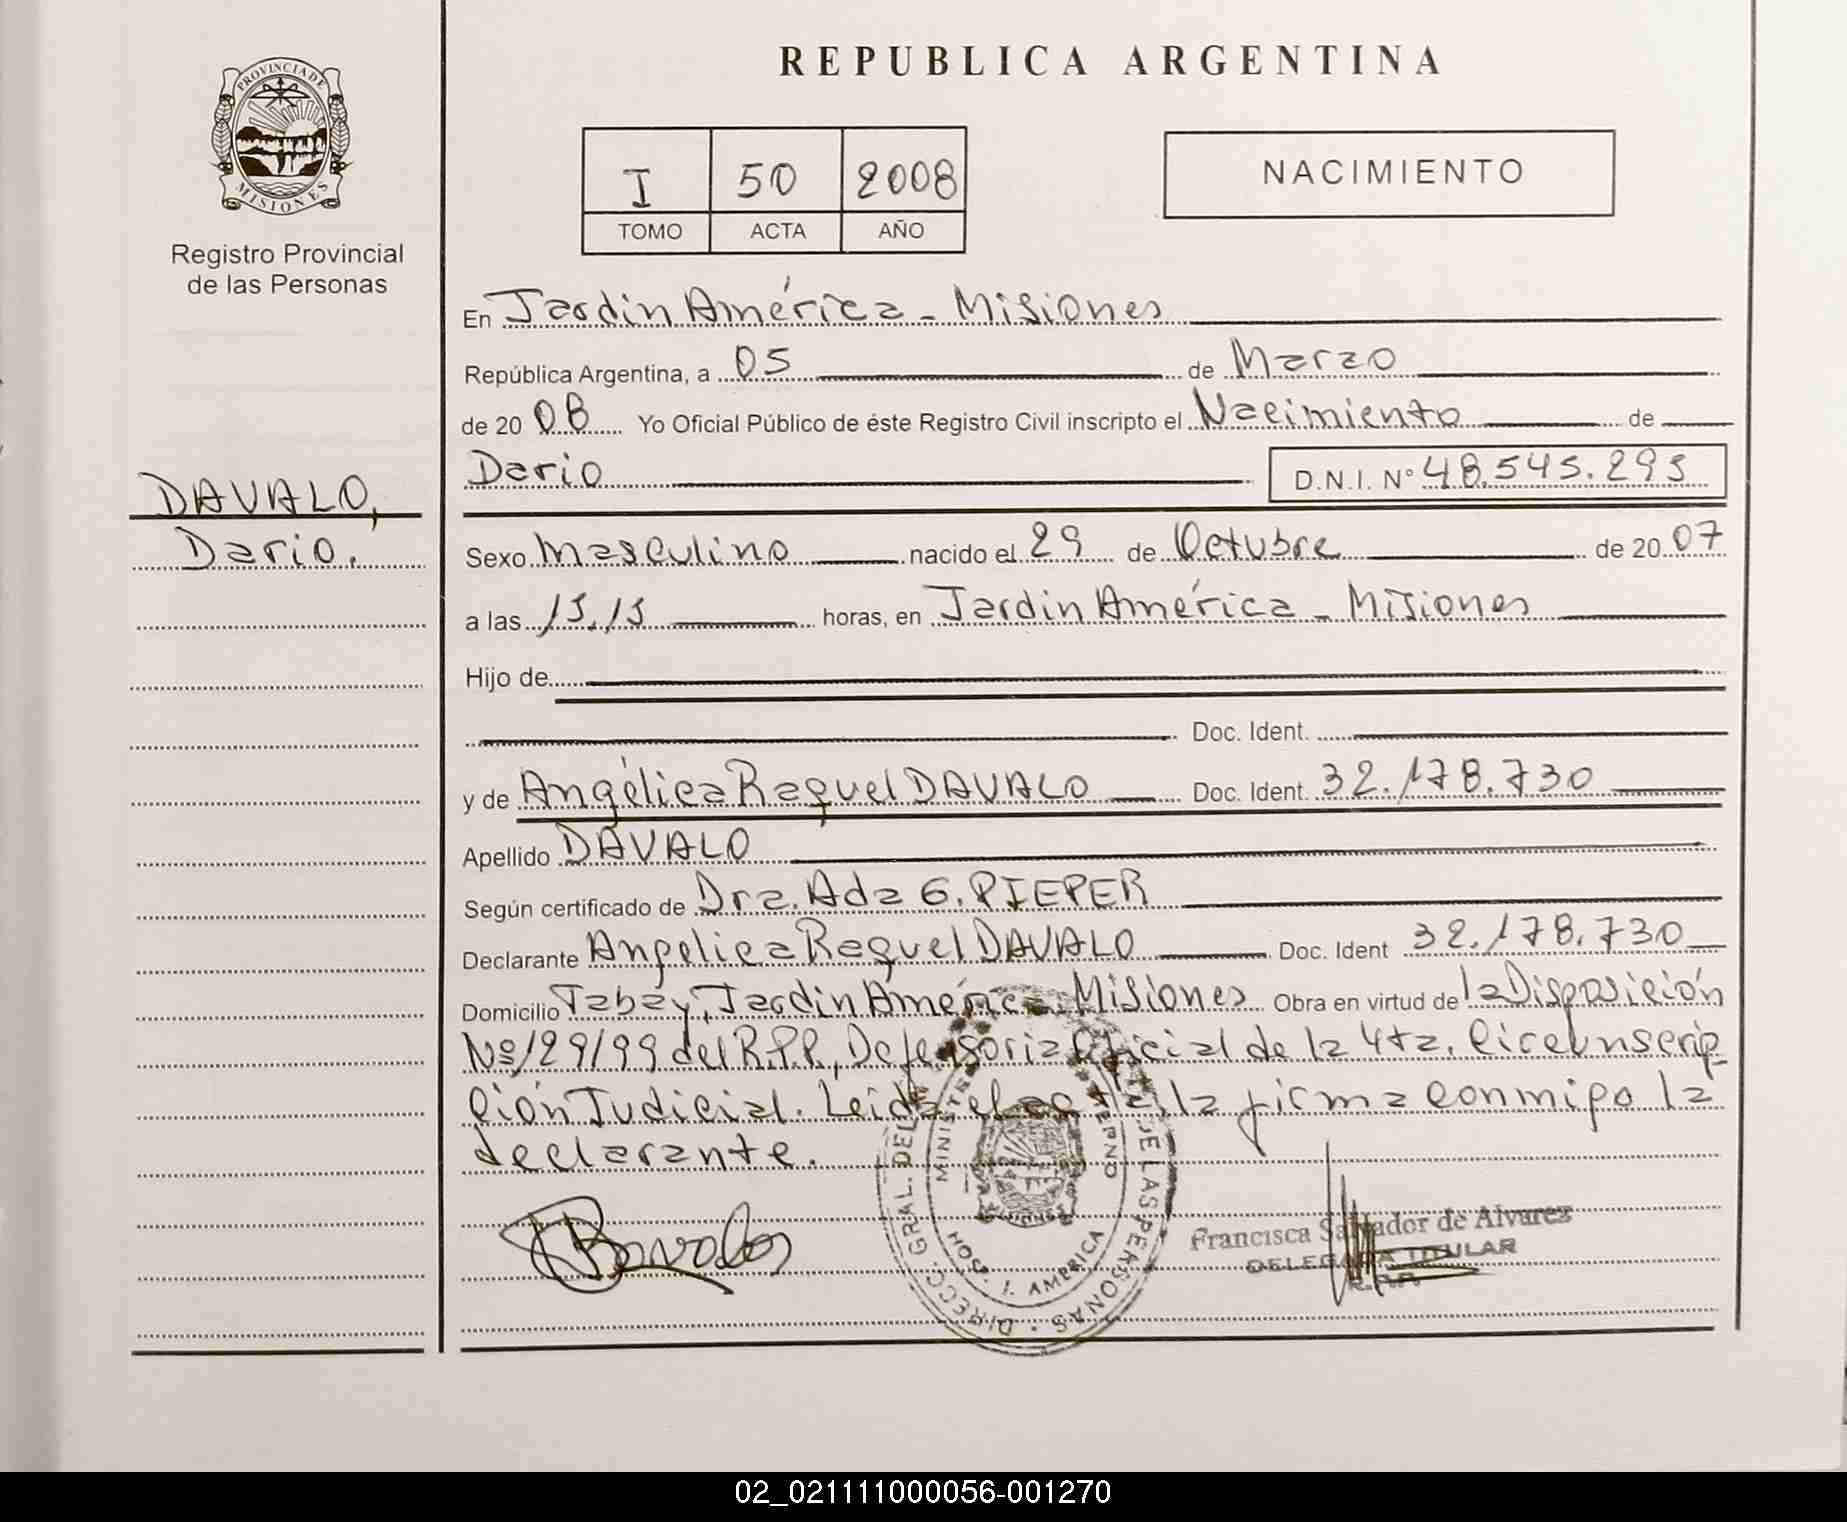 REPUBLICA ARGENTINA
PROVINCIA DE MISIONES
Registro Provincial
de las Personas
I 50 2008
TOMO ACTA AÑO
NACIMIENTO
En Jardin América - Misiones
República Argentina, a 05 de Marzo
de 20 08 Yo Oficial Público de éste Registro Civil inscripto el Nacimiento de
Dario D.N.I. Nº 48.545.293
DAVALO,
Dario.
Sexo Masculino nacido el 29 de Octubre de 20 07
a las 13,13 horas, en Jardin América - Misiones
Hijo de
Doc. Ident.
y de Angélica Raquel DAVALO Doc. Ident. 32.178.730
Apellido DAVALO
Según certificado de Dra. Ada G. PIEPER
Declarante Angelica Raquel DAVALO Doc. Ident 32.178.730
Domicilio Tabay, Jardin América Misiones Obra en virtud de la Disposición
Nº 129/99 del R.P.P., Defensoria Oficial de la 4ta. Circunscrip-
ción Judicial. Leida el acta, la firma conmigo la
declarante.
DIRECC. GRAL. DEL DE LAS PERSONAS
HOSP. J. AMERICA
Francisca Salvador de Alvarez
DELEGADA TITULAR
R.P.P.
02_021111000056-001270